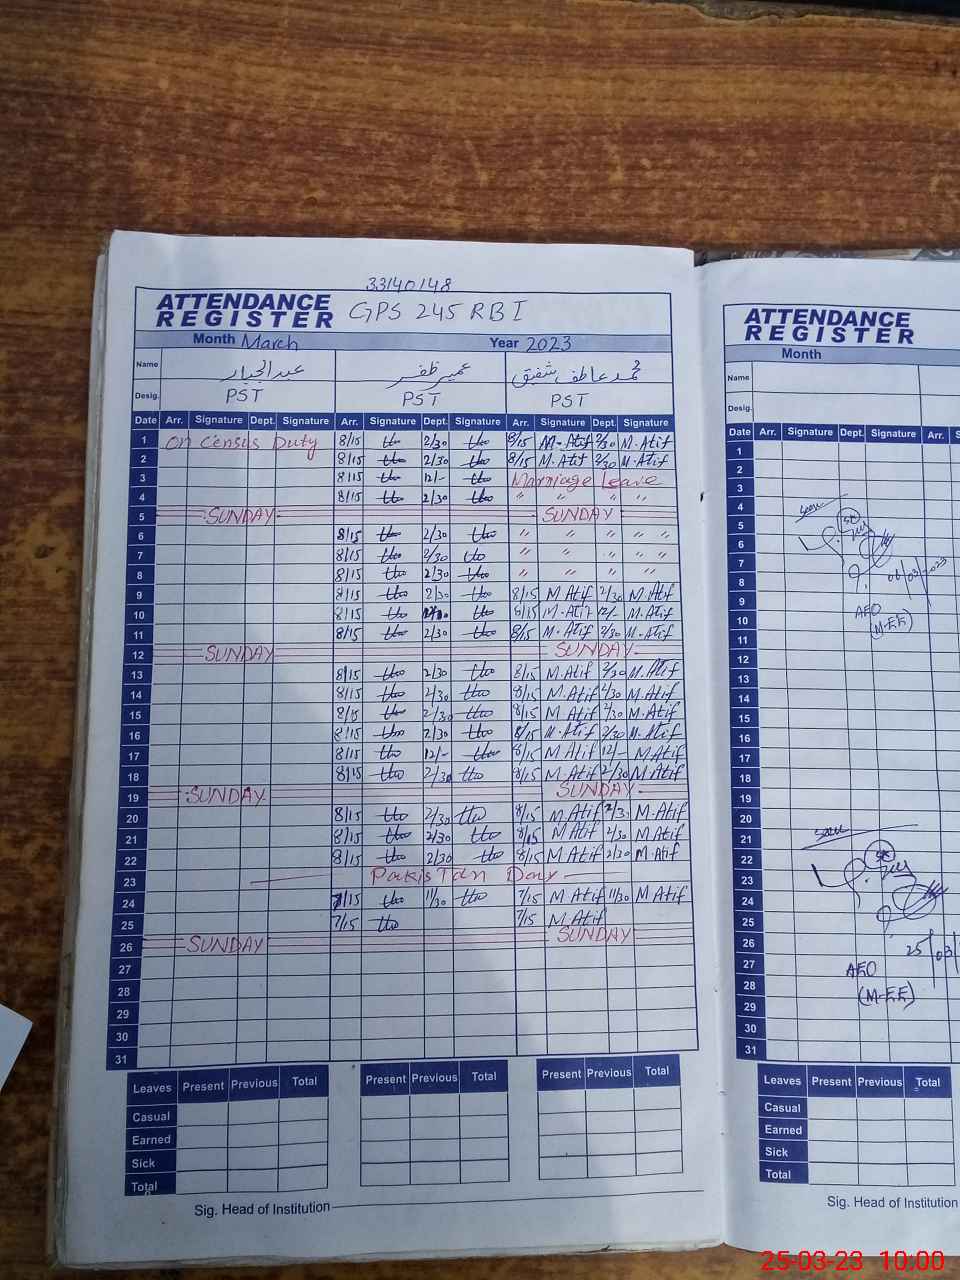 33140148
ATTENDANCE REGISTER GPS 245 RB I
Month March Year 2023
Name عبدالجبار عمیر ظفر محمد عاطف شفیق
Desig. PST PST PST
Date Arr. Signature Dept. Signature Arr. Signature Dept. Signature Arr. Signature Dept. Signature
1 On Census Duty 8/15 2/30 8/15 M.Atif 2/30 M.Atif
2 8/15 2/30 8/15 M.Atif 2/30 M.Atif
3 8/15 12/- Marriage Leave
4 8/15 2/30 " " " "
5 SUNDAY SUNDAY
6 8/15 2/30 " " " "
7 8/15 2/30 " " " "
8 8/15 2/30 " " " "
9 8/15 2/30 8/15 M Atif 2/30 M.Atif
10 8/15 8/15 M.Atif 12/- M.Atif
11 8/15 2/30 8/15 M.Atif 2/30 M.Atif
12 SUNDAY SUNDAY
13 8/15 2/30 8/15 M.Atif 2/30 M.Atif
14 8/15 2/30 8/15 M.Atif 2/30 M.Atif
15 8/15 2/30 8/15 M Atif 2/30 M.Atif
16 8/15 2/30 8/15 M.Atif 2/30 M.Atif
17 8/15 12/- 8/15 M Atif 12/- M Atif
18 8/15 2/30 8/15 M.Atif 2/30 M.Atif
19 SUNDAY SUNDAY
20 8/15 2/30 8/15 M Atif 2/30 M.Atif
21 8/15 2/30 8/15 M Atif 2/30 M Atif
22 8/15 2/30 8/15 M Atif 2/30 M.Atif
23 Pakistan Day
24 7/15 11/30 7/15 M Atif 11/30 M Atif
25 7/15 7/15 M Atif
26 SUNDAY SUNDAY
27
28
29
30
31
Leaves Present Previous Total Present Previous Total Present Previous Total
Casual
Earned
Sick
Total
Sig. Head of Institution
ATTENDANCE REGISTER
Month
Name
Desig.
Date Arr. Signature Dept. Signature Arr.
1
2
3
4 seen
5
6
7
8 06/03/2023
9
10 AEO
11 (M-EE)
12
13
14
15
16
17
18
19
20
21 seen
22
23
24
25
26 25/03/
27 AEO
28 (M-EE)
29
30
31
Leaves Present Previous Total
Casual
Earned
Sick
Total
Sig. Head of Institution
25-03-23 10:00